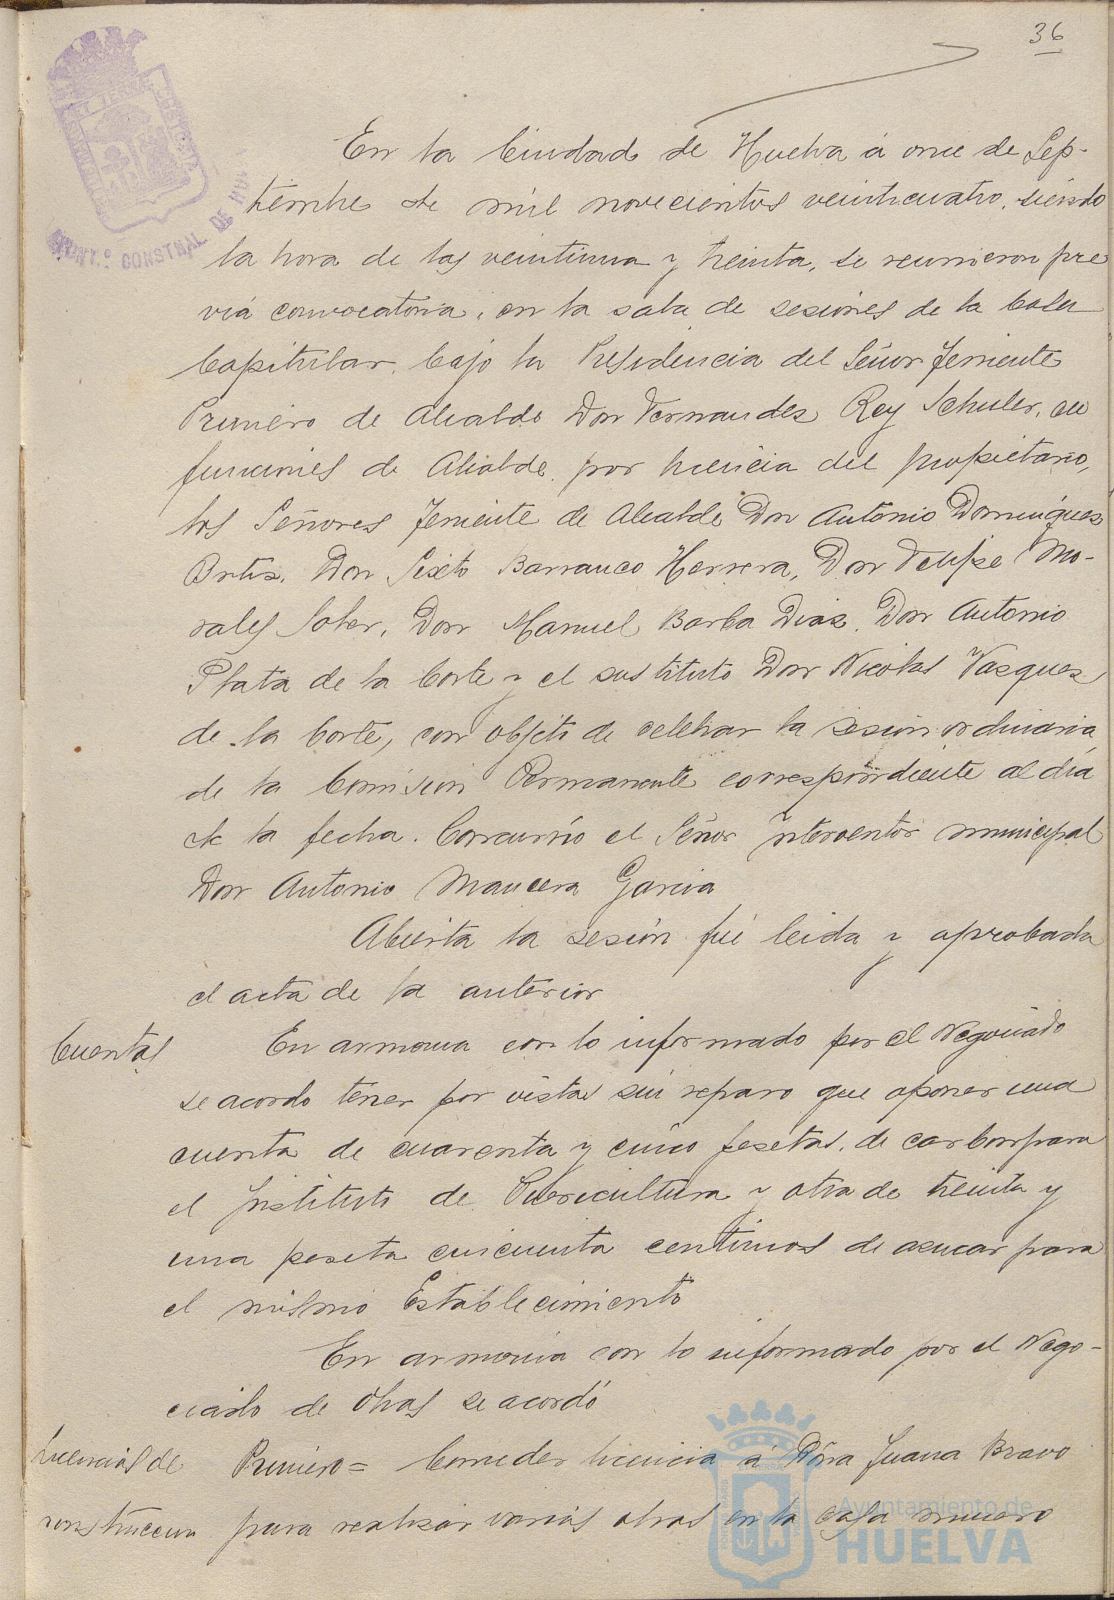 36
En la Ciudad de Huelva á once de Sep-
tiembre de mil novecientos veinticuatro, siendo
la hora de las veintiuna y treinta, se reunieron pre
via convocatoria, en la sala de sesiones de la Casa
Capitular, bajo la Presidencia del Señor Teniente
Primero de Alcalde Don Fernandez Rey Schuler, en
funciones de Alcalde por licencia del propietario,
los Señores Teniente de Alcalde Don Antonio Dominguez
Ortiz, Don Sixto Barranco Herrera, Don Felipe Mo-
rales Soler, Don Manuel Barba Diaz, Don Antonio
Plata de la Corte y el sustituto Don Nicolas Vazquez
de la Corte, con objeto de celebrar la sesion ordinaria
de la Comision Permanente correspondiente al dia
de la fecha. Concurrio el Señor Interventor municipal
Don Antonio Mancera Garcia
Abierta la sesión fué leida y aprobada
el acta de la anterior
Cuentas En armonia con lo informado por el Negociado
se acordo tener por vistas sin reparo que oponer una
cuenta de cuarenta y cinco pesetas, de carbon para
el Instituto de Puericultura y otra de treinta y
una peseta cincuenta centimos de azucar para
el mismo Establecimiento
En armonia con lo informado por el Nego-
ciado de Obras se acordó
Licencias de Primero = Conceder licencia á Dña Juana Bravo
construccion para realizar varias obras en la casa numero
AYUNT.º CONSTNAL DE HUELVA
Ayuntamiento de
HUELVA